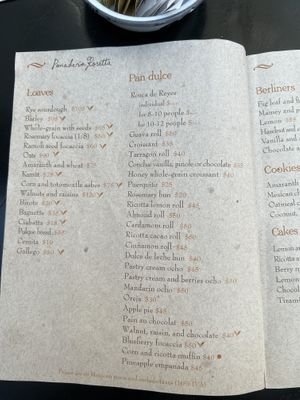 Panadería Rosetta
Loaves
Rye sourdough $105
Barley $98
Whole-grain with seeds
Rosemary focaccia (1/8) $80
Ramón seed focaccia $60
Oats $90
Amaranth and wheat $75
Kamut $78
Corn and totomoxtle ashes $78
Walnuts and raisins $120
Birote $20
Baguette $38
Ciabatta $18
Pulque bread
Cemita $10
Gallego $80
Pan dulce
Rosca de Reyes
individual
for 8-10 people
for 10-12 people
Guava roll $60
Croissant $38
Tarragon roll $40
Conchas vanilla, pinole or chocolate $35
Honey whole-grain croissant $40
Puerquito $25
Rosemary bun $20
Ricotta lemon roll $45
Almond roll $50
Cardamom roll $50
Ricotta cacao roll $50
Cinnamon roll $45
Dulce de leche bun $40
Pastry cream ocho $45
Pastry cream and berries ocho $50
Mandarin ocho $50
Oreja $30
Apple pie $45
Pain au chocolat $50
Walnut, raisin, and chocolate $40
Blueberry focaccia $50
Corn and ricotta muffin $40
Pineapple empanada $45
Prices are in Mexican pesos and include taxes (16% IVA)
Berliners
Fig leaf and
Mamey and
Lemon $55
Hazelnut and
Vanilla and
Chocolate
Cookies
Amaranth
Mexican
Oatmeal
Coconut
Cakes
Lemon
Ricotta
Berry
Lemon
Chocolate